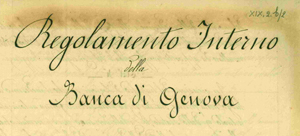 Regolamento Interno
della
Banca di Genova